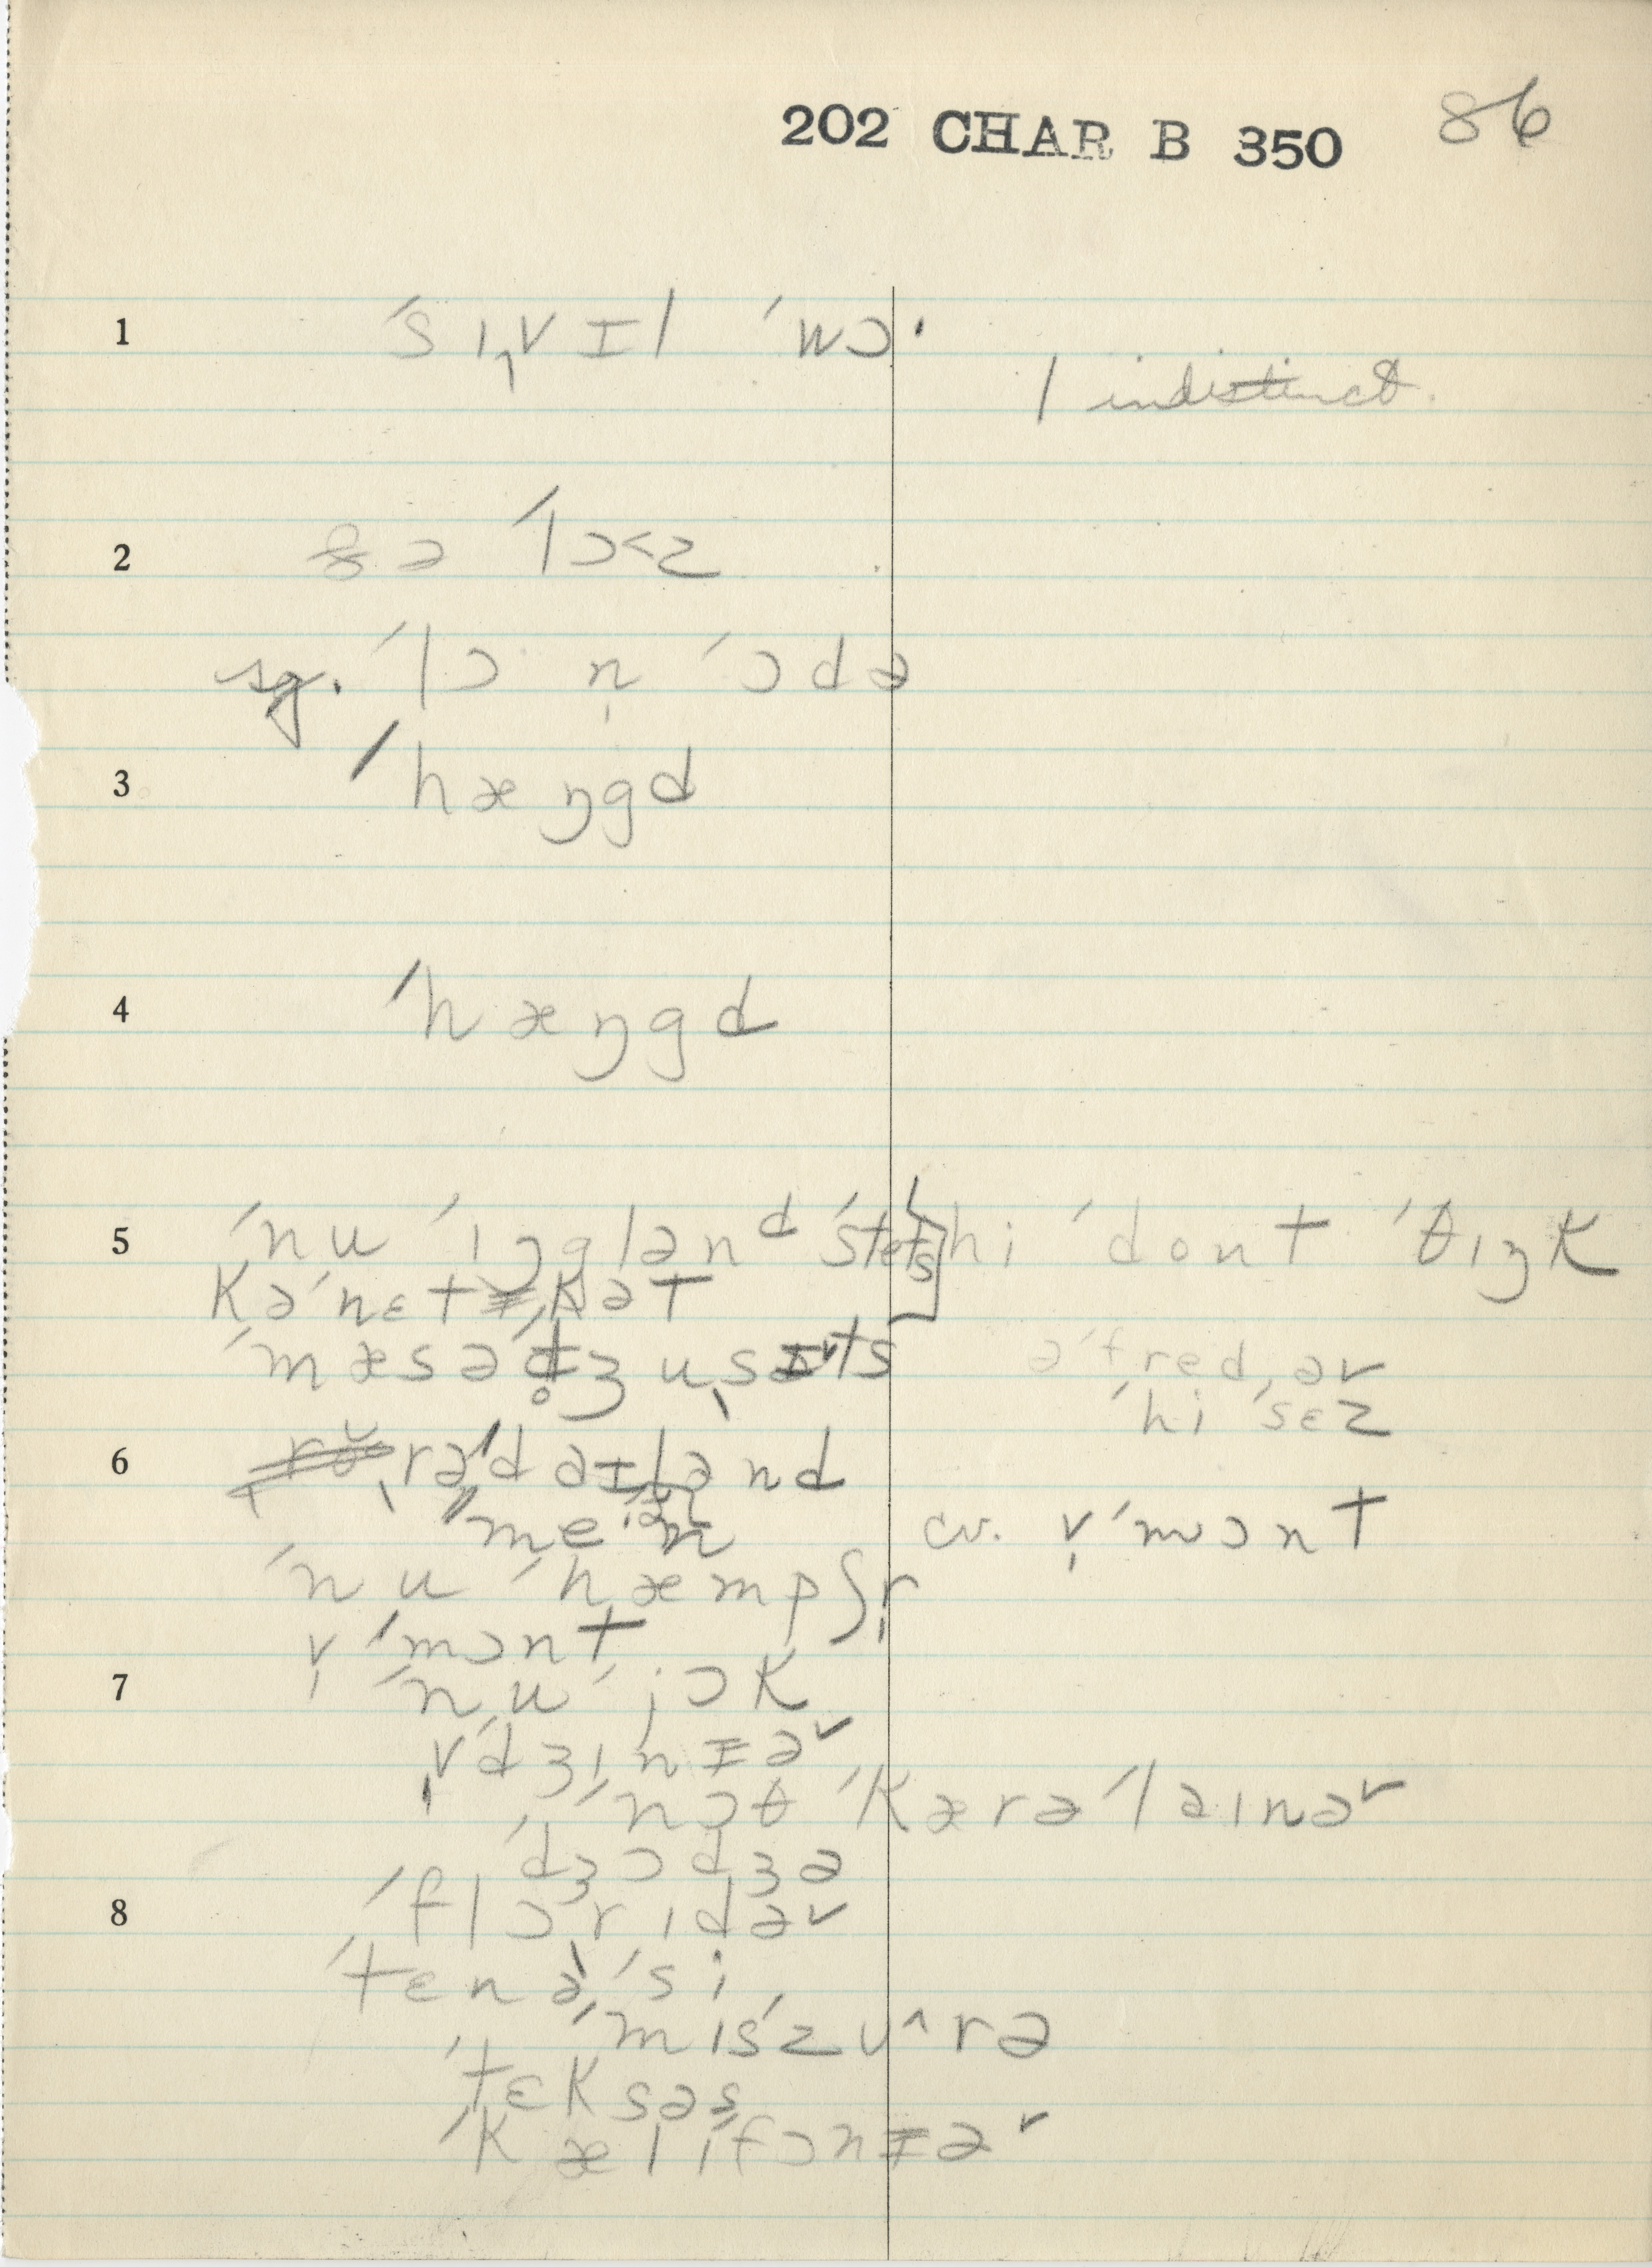 202 CHAR B 350 86
1 ˈsɪ̩vɪl ˈwɔ·
l indistinct.
2 ðə ˈlɔ˂z
sg. ˈlɔ n̩ ˈɔdə
3 ˈhæŋgd
4 ˈhæŋgd
5 ˈnu ˈɪŋgləndᵈ ˈstets] hi ˈdont ˈθɪŋk
kəˈnɛtɨˌkət
ˈmæsəˌd̥ʒuˌsəts
əˈfredˌəv
ˈhi ˈsɛz
6 ˌrəˈdaɪlənd
ˈmeˑən
cv. v̩ˈmɔnt
ˈnu ˈhæmpʃr̩
v̩ˈmɔnt
7 ˈnu ˈjɔk
v̩ˈdʒɪnɨəˇ
ˈnɔθ ˈkærəˈlaɪnəˇ
ˈdʒɔdʒə
8 ˈflɔrɪdəˇ
ˈtɛnəˈsi
ˈmɪsˈzʊ^rə
ˈtɛksəs
ˈkælɪˈfɔnɨəˇ